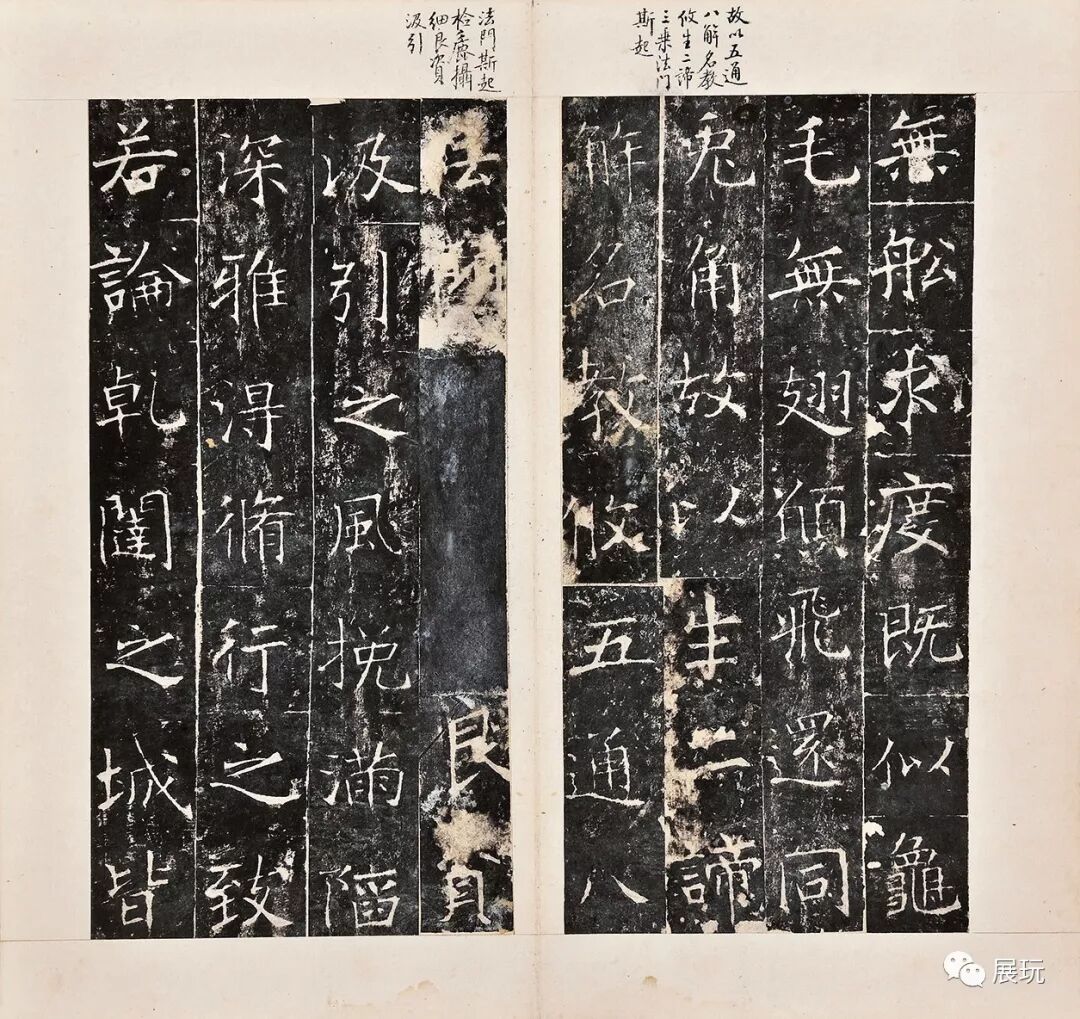 故以五通
八解名教
攸生二諦
三乗法门
斯起
無舩求度既似龜
毛無翅願飛還同
兎角故以生二諦
解名教攸五通八
法門斯起
检麤攝
细良資
汲引
法門良資
汲引之風挽滿陷
深雅淂脩行之致
若論乹闥之城皆
展玩